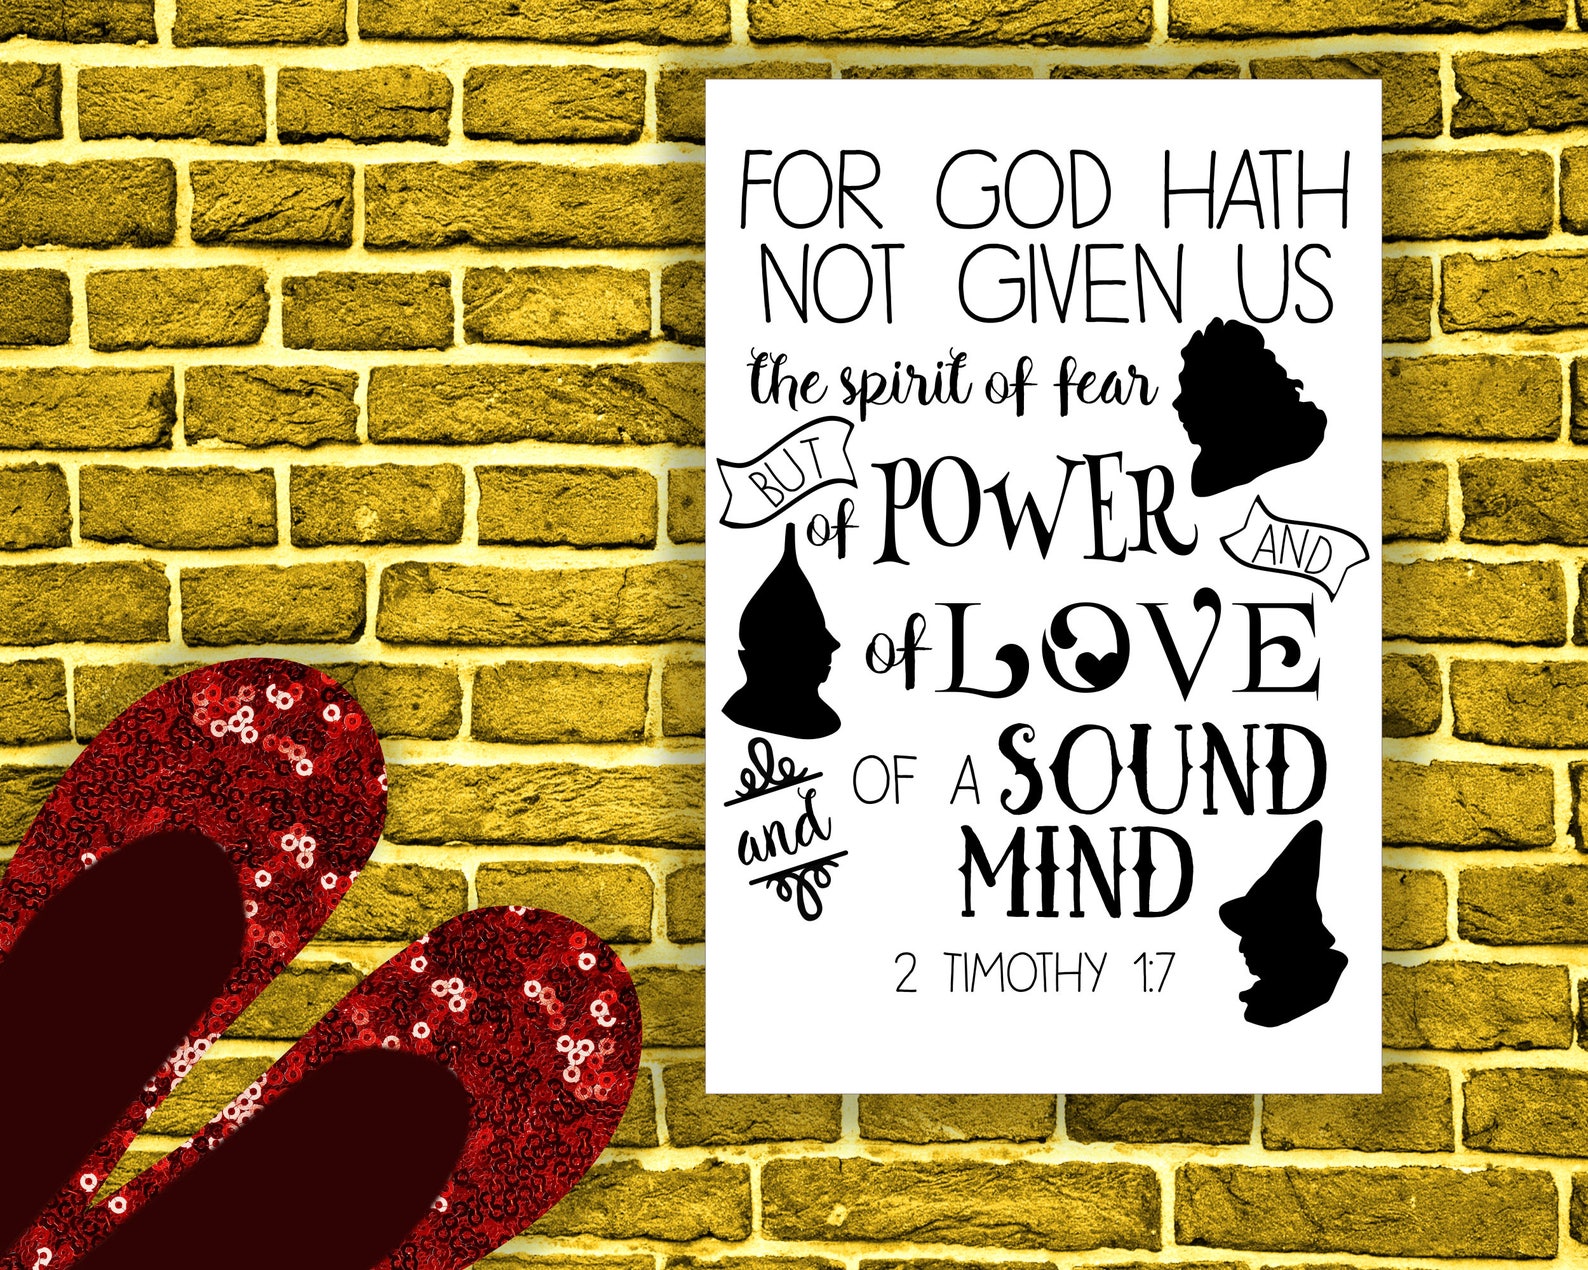 FOR GOD HATH
NOT GIVEN US
the spirit of fear
BUT
of POWER
AND
of LOVE
and
OF A SOUND
MIND
2 TIMOTHY 1:7